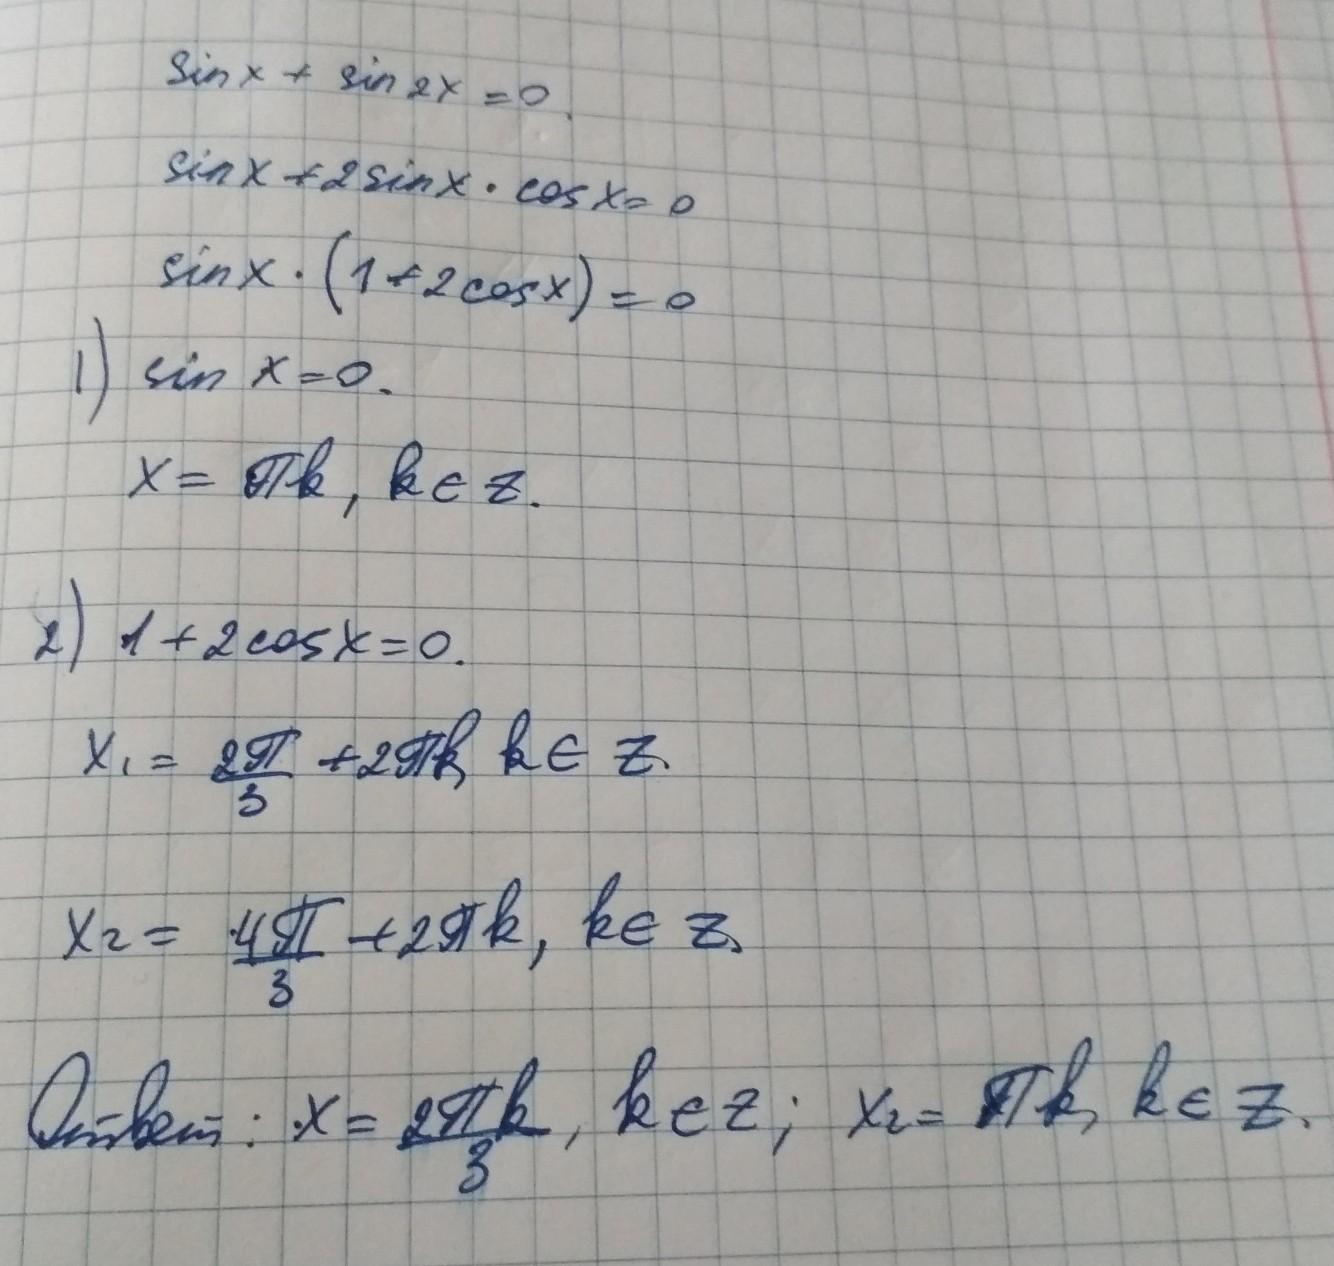 sin x + sin 2x = 0.
sin x + 2 sin x · cos x = 0
sin x · (1 + 2 cos x) = 0
1) sin x = 0.
x = πk, k ∈ z.
2) 1 + 2 cos x = 0.
x₁ = 2π/3 + 2πk, k ∈ z.
x₂ = 4π/3 + 2πk, k ∈ z.
Ответ: x = 2πk/3, k ∈ z; x₂ = πk, k ∈ z.